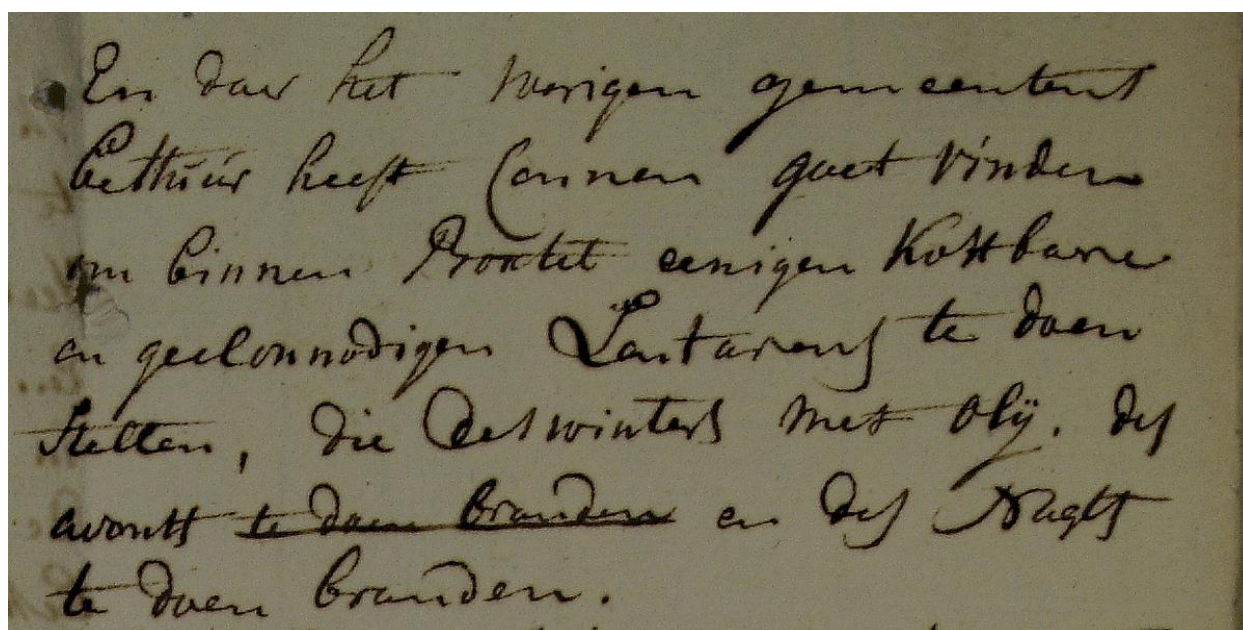 En daer het vorigen gemeentens
besttuur heeft Connen goet vinden
om binnen Boxtel eenigen Kostbare
en geclonnodigen Lantarens te doen
stellen, die des winters met olij. des
avonts te doen branden en des Nagts
te doen branden.